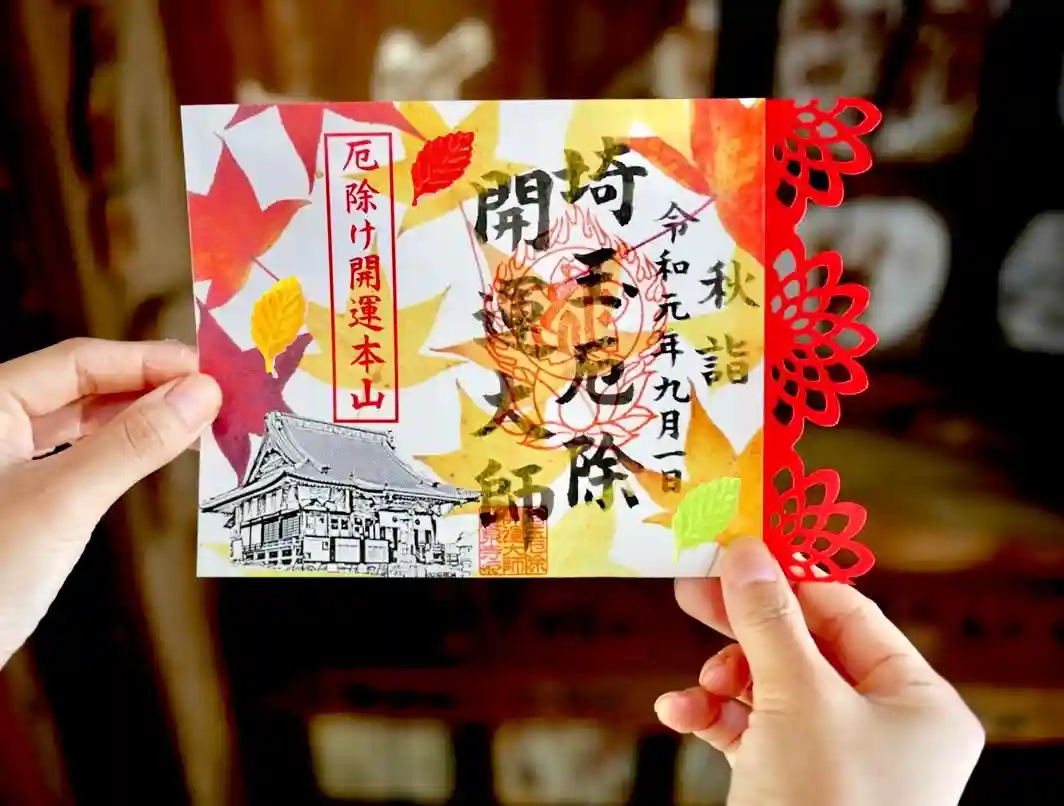 秋詣
令和元年九月一日
埼玉厄除
開運大師
厄除け開運本山